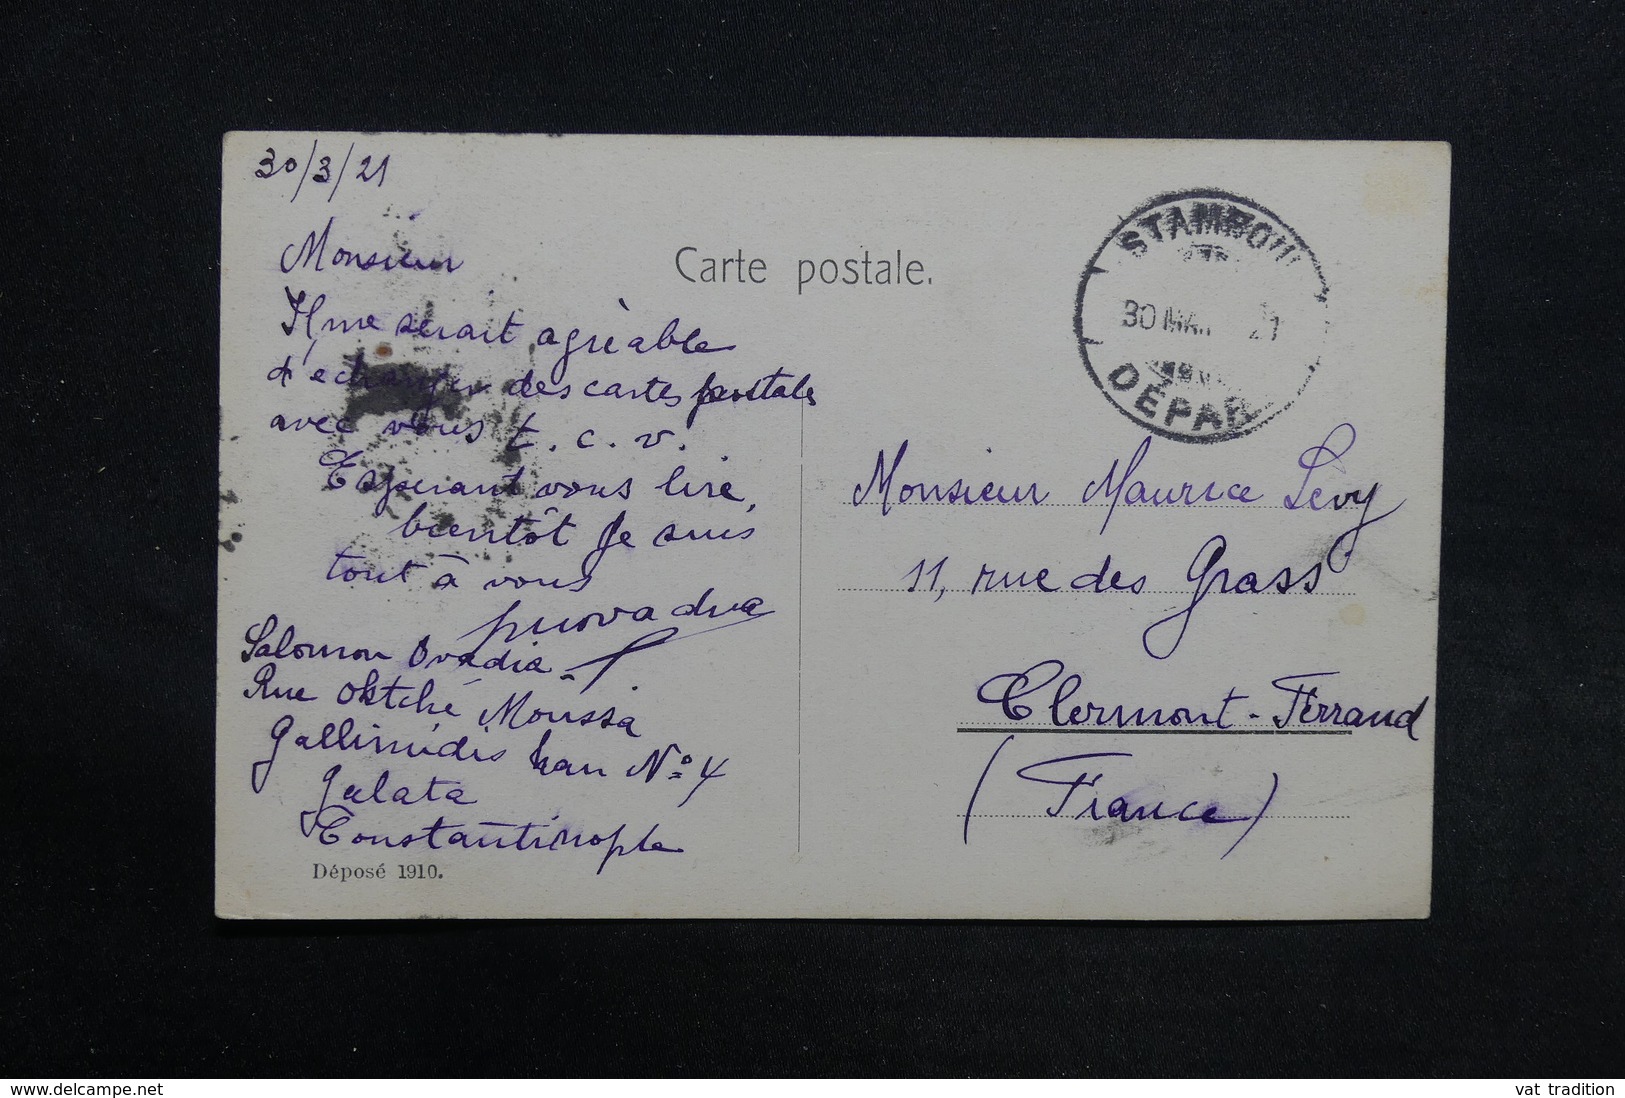 30/3/21
Monsieur
Il me serait agrèable
d'echanger des cartes postales
avec vous t. c. v.
Esperant vous lire,
bientôt je suis
tout à vous
Salomon Ovadia
Rue Oktché Moussa
Gallimidis han Nº 4
Galata
Constantinople
Déposé 1910.
Carte postale.
STAMBOUL
30 MAR 21
DÉPART
Monsieur Maurice Levy
11, rue des Grass
Clermont-Ferrand
(France)
www.delcampe.net
vat tradition